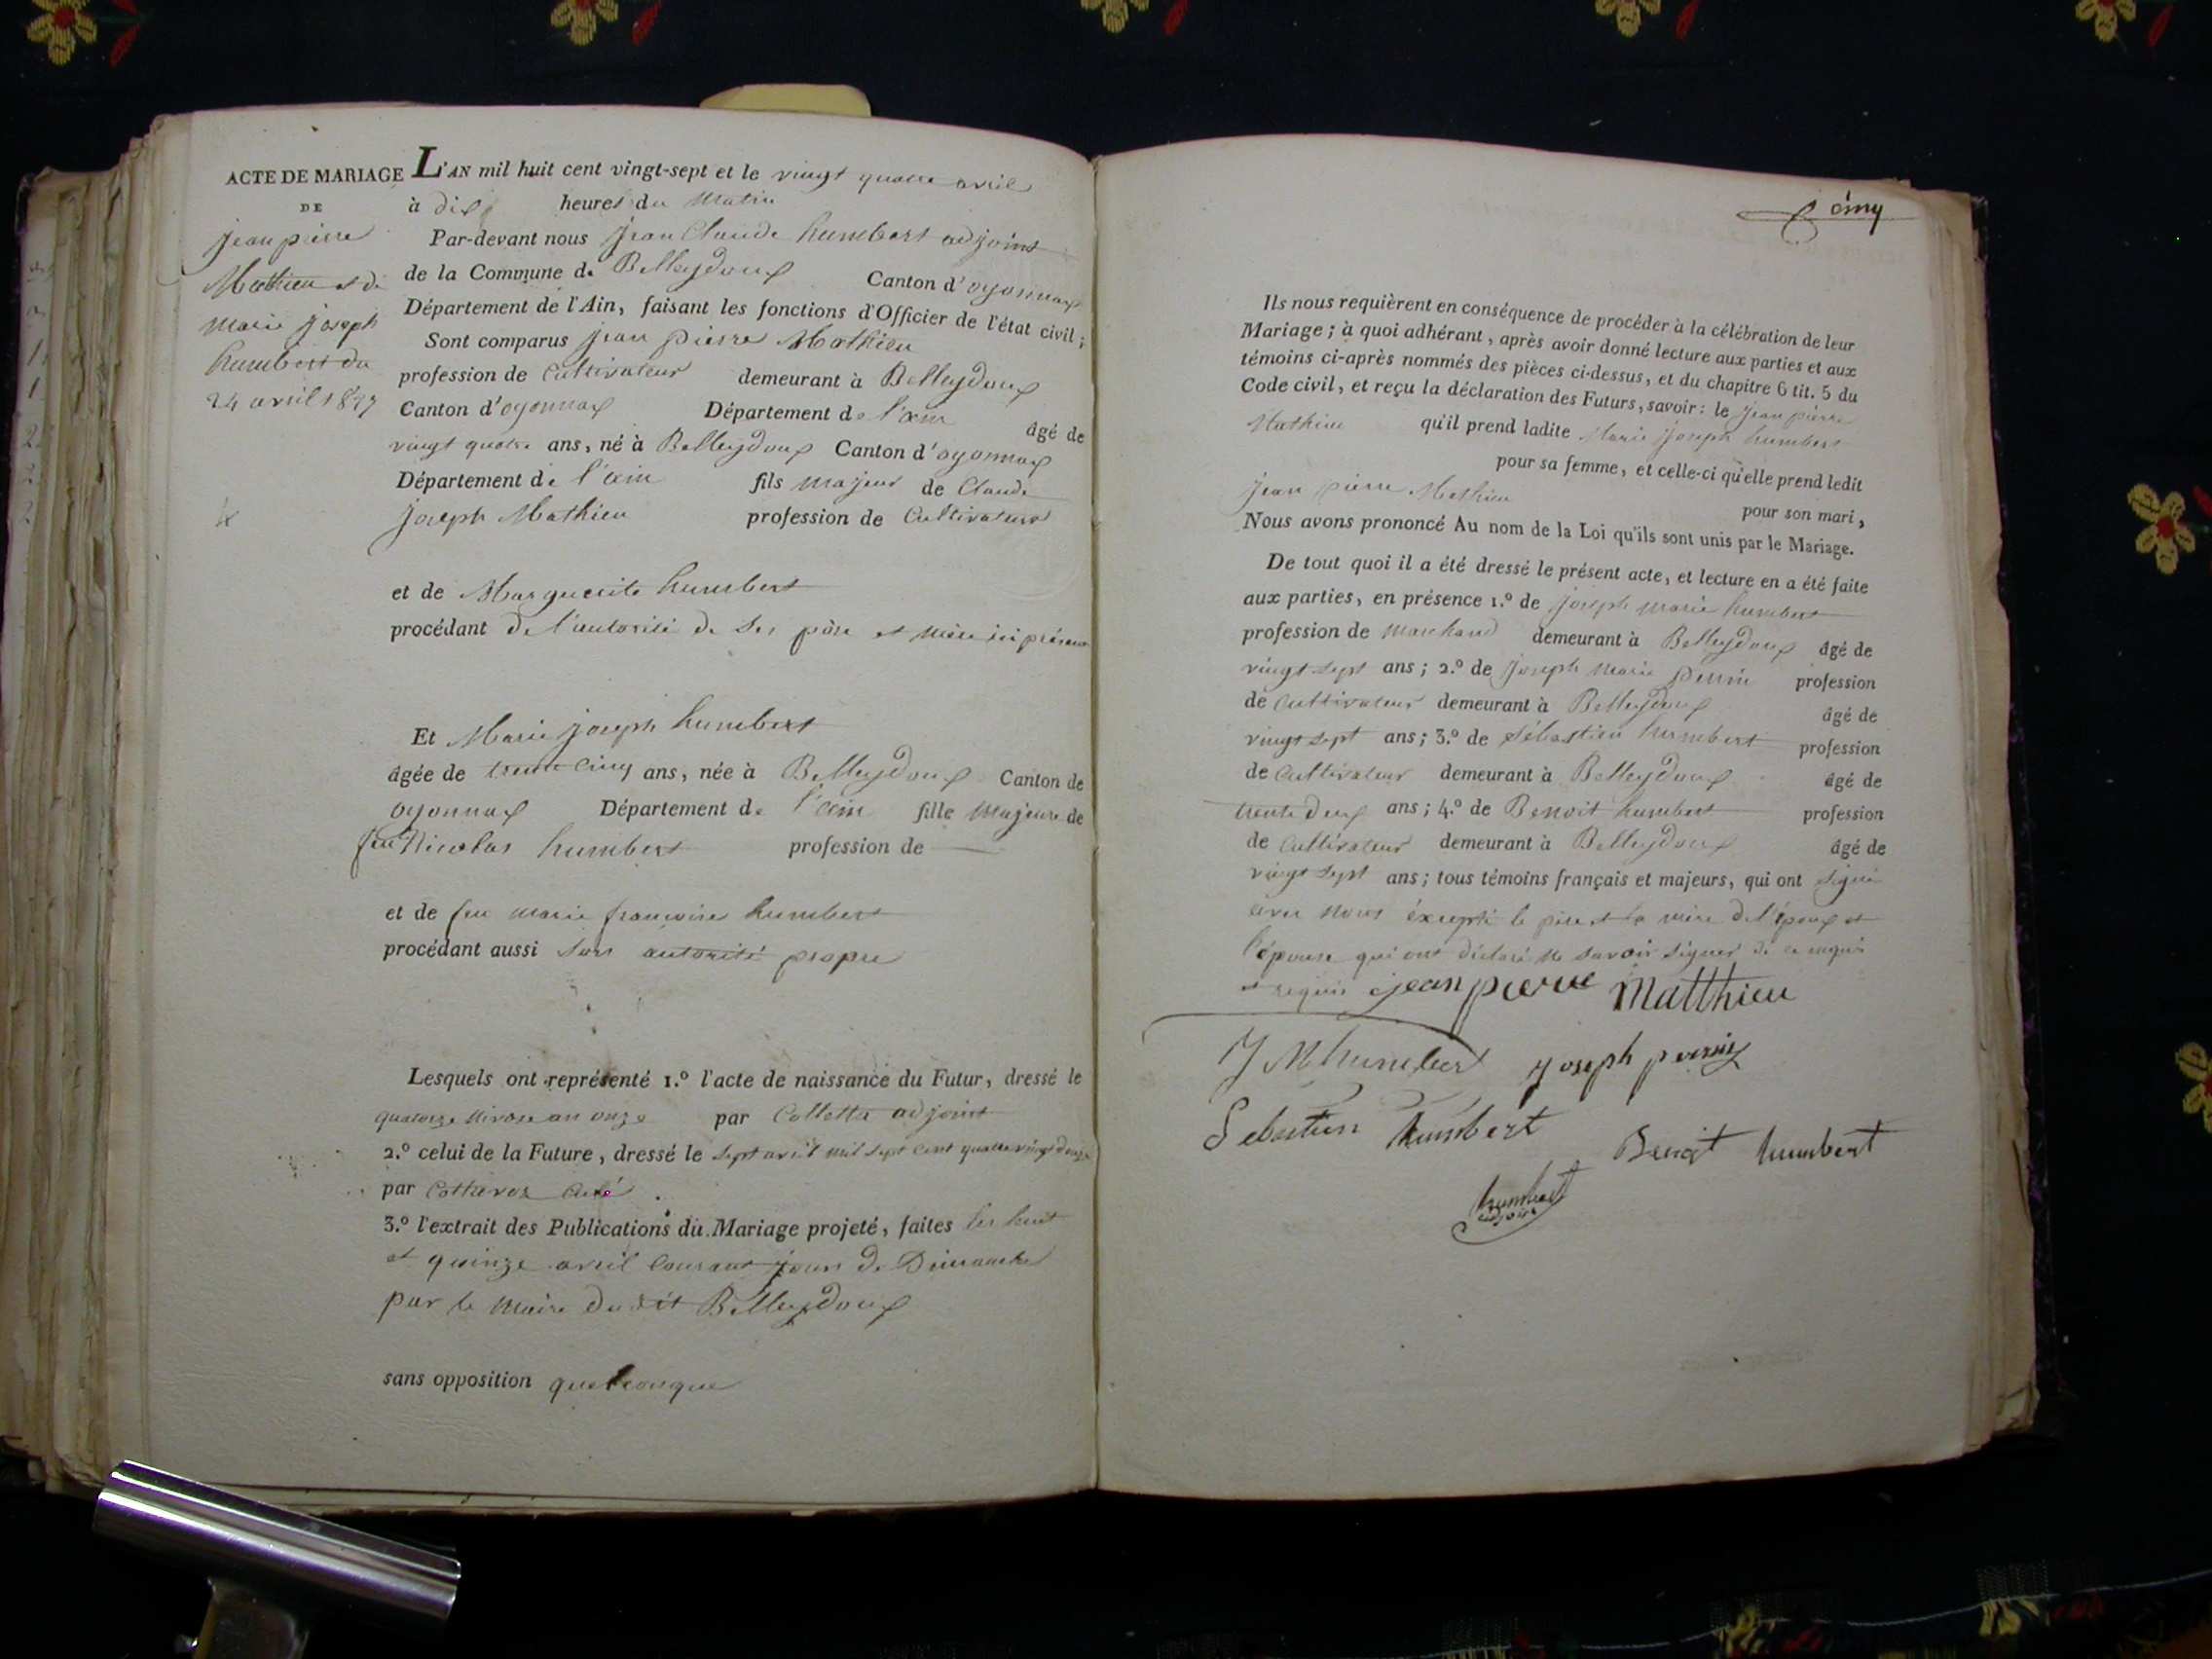 ACTE DE MARIAGE
DE
jean pierre
Mathieu et de
marie joseph
humbert du
24 avril 1827
L'AN mil huit cent vingt-sept et le vingt quatre avril
à dix heures du matin
Par-devant nous jean Claude humbert adjoint
de la Commune de Belleydoux Canton d'oyonnax
Département de l'Ain, faisant les fonctions d'Officier de l'état civil;
Sont comparus jean pierre Mathieu
profession de Cultivateur demeurant à Belleydoux
Canton d'oyonnax Département de l'ain âgé de
vingt quatre ans, né à Belleydoux Canton d'oyonnax
Département de l'ain fils majeur de Claude
joseph Mathieu profession de Cultivateur
et de Marguerite humbert
procédant de l'autorité de ses père et mère ici présens
Et Marie joseph humbert
âgée de trente cinq ans, née à Belleydoux Canton de
oyonnax Département de l'ain fille majeure de
feu Nicolas humbert profession de
et de feu marie francoise humbert
procédant aussi sous autorité propre
Lesquels ont représenté 1.º l'acte de naissance du Futur, dressé le
quatorze nivose an onze par Colletta adjoint
2.º celui de la Future, dressé le sept avril mil sept cent quatre vingt douze
par Cottavoz Curé
3.º l'extrait des Publications du Mariage projeté, faites les huit
et quinze avril Courant jours de Dimanche
par le maire du dit Belleydoux
sans opposition quelconque
cinq
Ils nous requièrent en conséquence de procéder à la célébration de leur
Mariage; à quoi adhérant, après avoir donné lecture aux parties et aux
témoins ci-après nommés des pièces ci-dessus, et du chapitre 6 tit. 5 du
Code civil, et reçu la déclaration des Futurs, savoir: le jean pierre
Mathieu qu'il prend ladite Marie joseph humbert
pour sa femme, et celle-ci qu'elle prend ledit
jean pierre Mathieu pour son mari,
Nous avons prononcé Au nom de la Loi qu'ils sont unis par le Mariage.
De tout quoi il a été dressé le présent acte, et lecture en a été faite
aux parties, en présence 1.º de joseph marie humbert
profession de marchand demeurant à Belleydoux âgé de
vingt sept ans; 2.º de joseph marie perrin profession
de Cultivateur demeurant à Belleydoux âgé de
vingt sept ans; 3.º de Sébastien humbert profession
de Cultivateur demeurant à Belleydoux âgé de
trente deux ans; 4.º de Benoit humbert profession
de Cultivateur demeurant à Belleydoux âgé de
vingt sept ans; tous témoins français et majeurs, qui ont signé
avec nous éxcepté le père et la mère de l'époux et
l'épouse qui ont déclaré ne savoir signer de ce enquis
et requis jean pierre Matthieu
J M humbert joseph perrin
Sebastien humbert Benoit humbert
humbert
adjoint